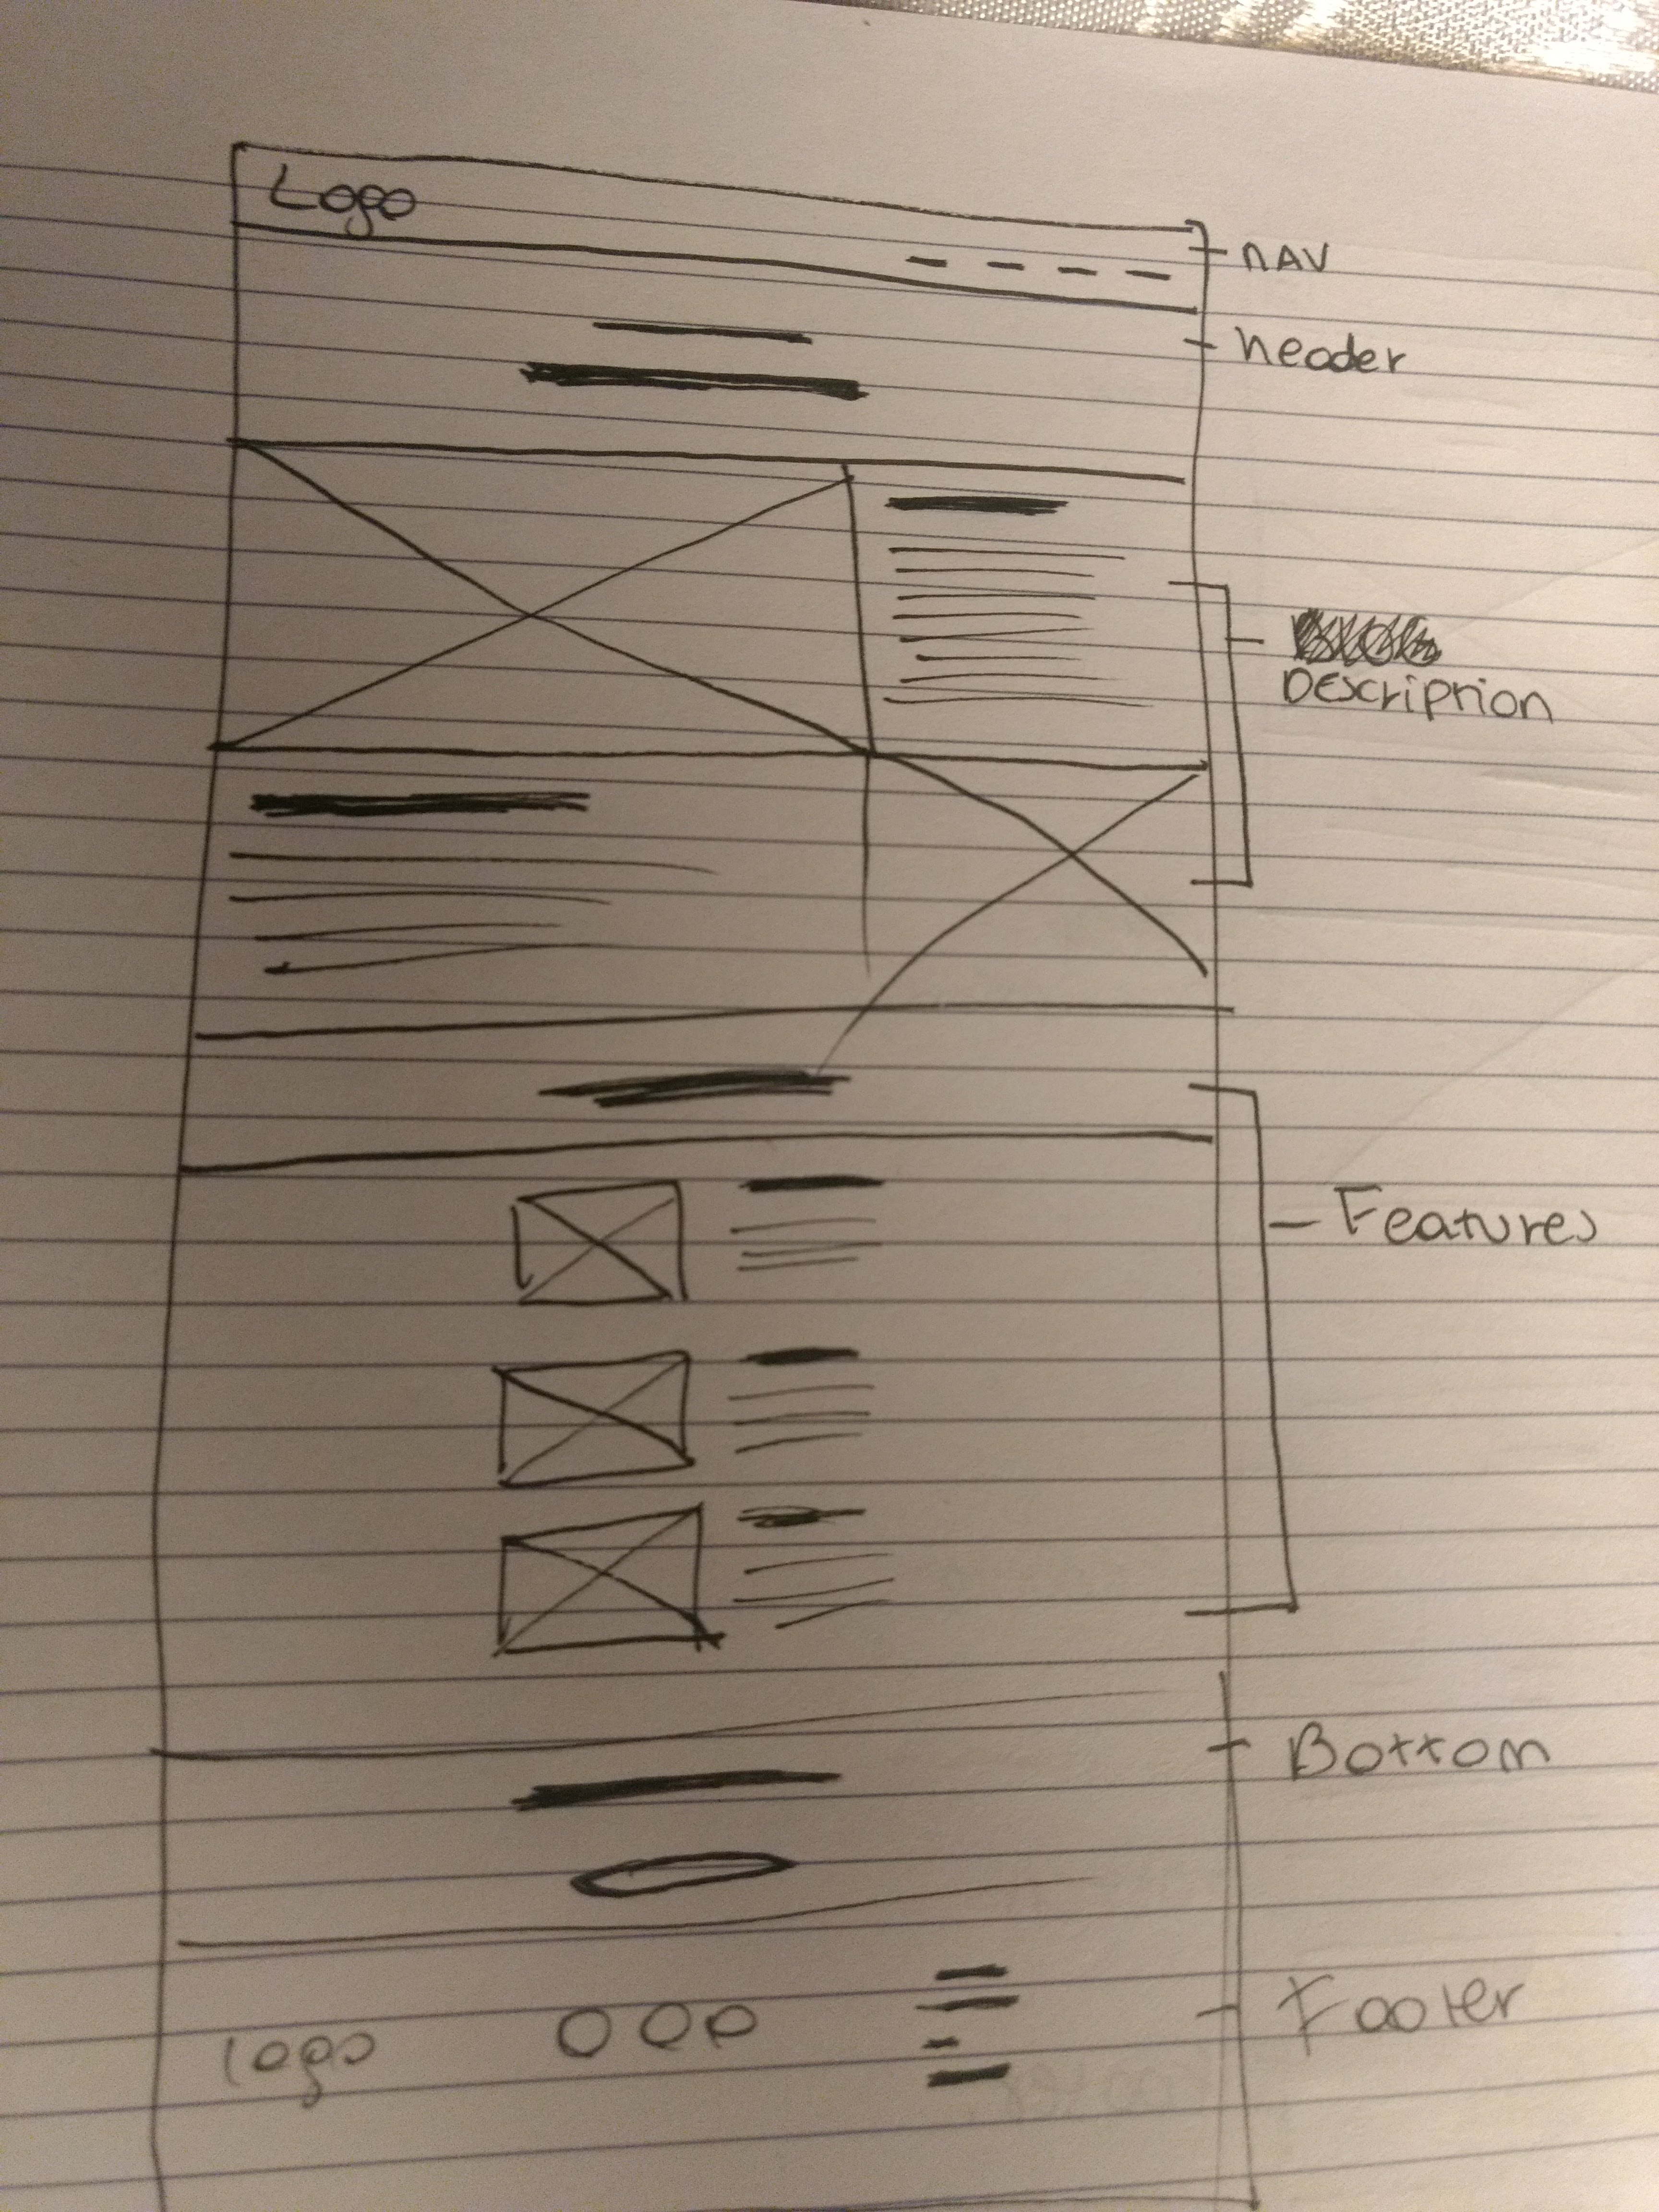 Logo
nAV
header
Description
Features
Bottom
logo
Footer